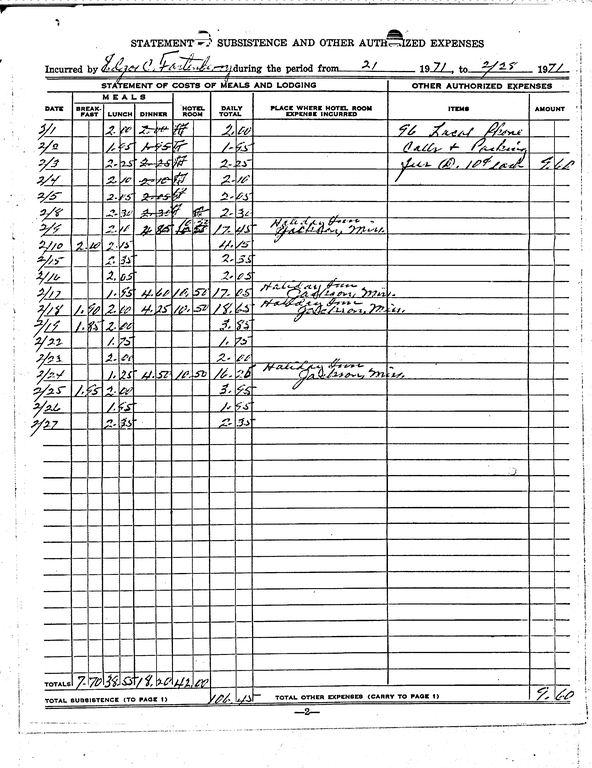 STATEMENT SUBSISTENCE AND OTHER AUTHORIZED EXPENSES
Incurred by Edgar C. during the period from 21 1971, to 2/28 1971
STATEMENT OF COSTS OF MEALS AND LODGING OTHER AUTHORIZED EXPENSES
MEALS
DATE BREAK-FAST LUNCH DINNER HOTEL ROOM DAILY TOTAL PLACE WHERE HOTEL ROOM EXPENSE INCURRED ITEMS AMOUNT
2/1 2.00 2.00 2.00 96 Local Phone
2/2 1.95 1.95 1.95 Calls & Parking
2/3 2.25 2.25 2.25 10¢ each 9.60
2/4 2.10 2.10 2.10
2/5 2.05 2.05 2.05
2/8 2.30 2.30 2.30
2/9 2.10 4.85 10.50 17.45 Holiday Inn Jackson, Miss.
2/10 2.10 2.15 4.15
2/15 2.35 2.35
2/16 2.05 2.05
2/17 1.95 4.60 10.50 17.05 Holiday Inn Jackson, Miss.
2/18 1.90 2.00 4.25 10.50 18.65 Holiday Inn Jackson, Miss.
2/19 1.85 2.00 3.85
2/22 1.75 1.75
2/23 2.00 2.00
2/24 1.25 4.50 10.50 16.25 Holiday Inn Jackson, Miss.
2/25 1.95 2.00 3.95
2/26 1.95 1.95
2/27 2.35 2.35
TOTALS 7.70 38.55 18.20 42.00
TOTAL SUBSISTENCE (TO PAGE 1) 106.45 TOTAL OTHER EXPENSES (CARRY TO PAGE 1) 9.60
—2—